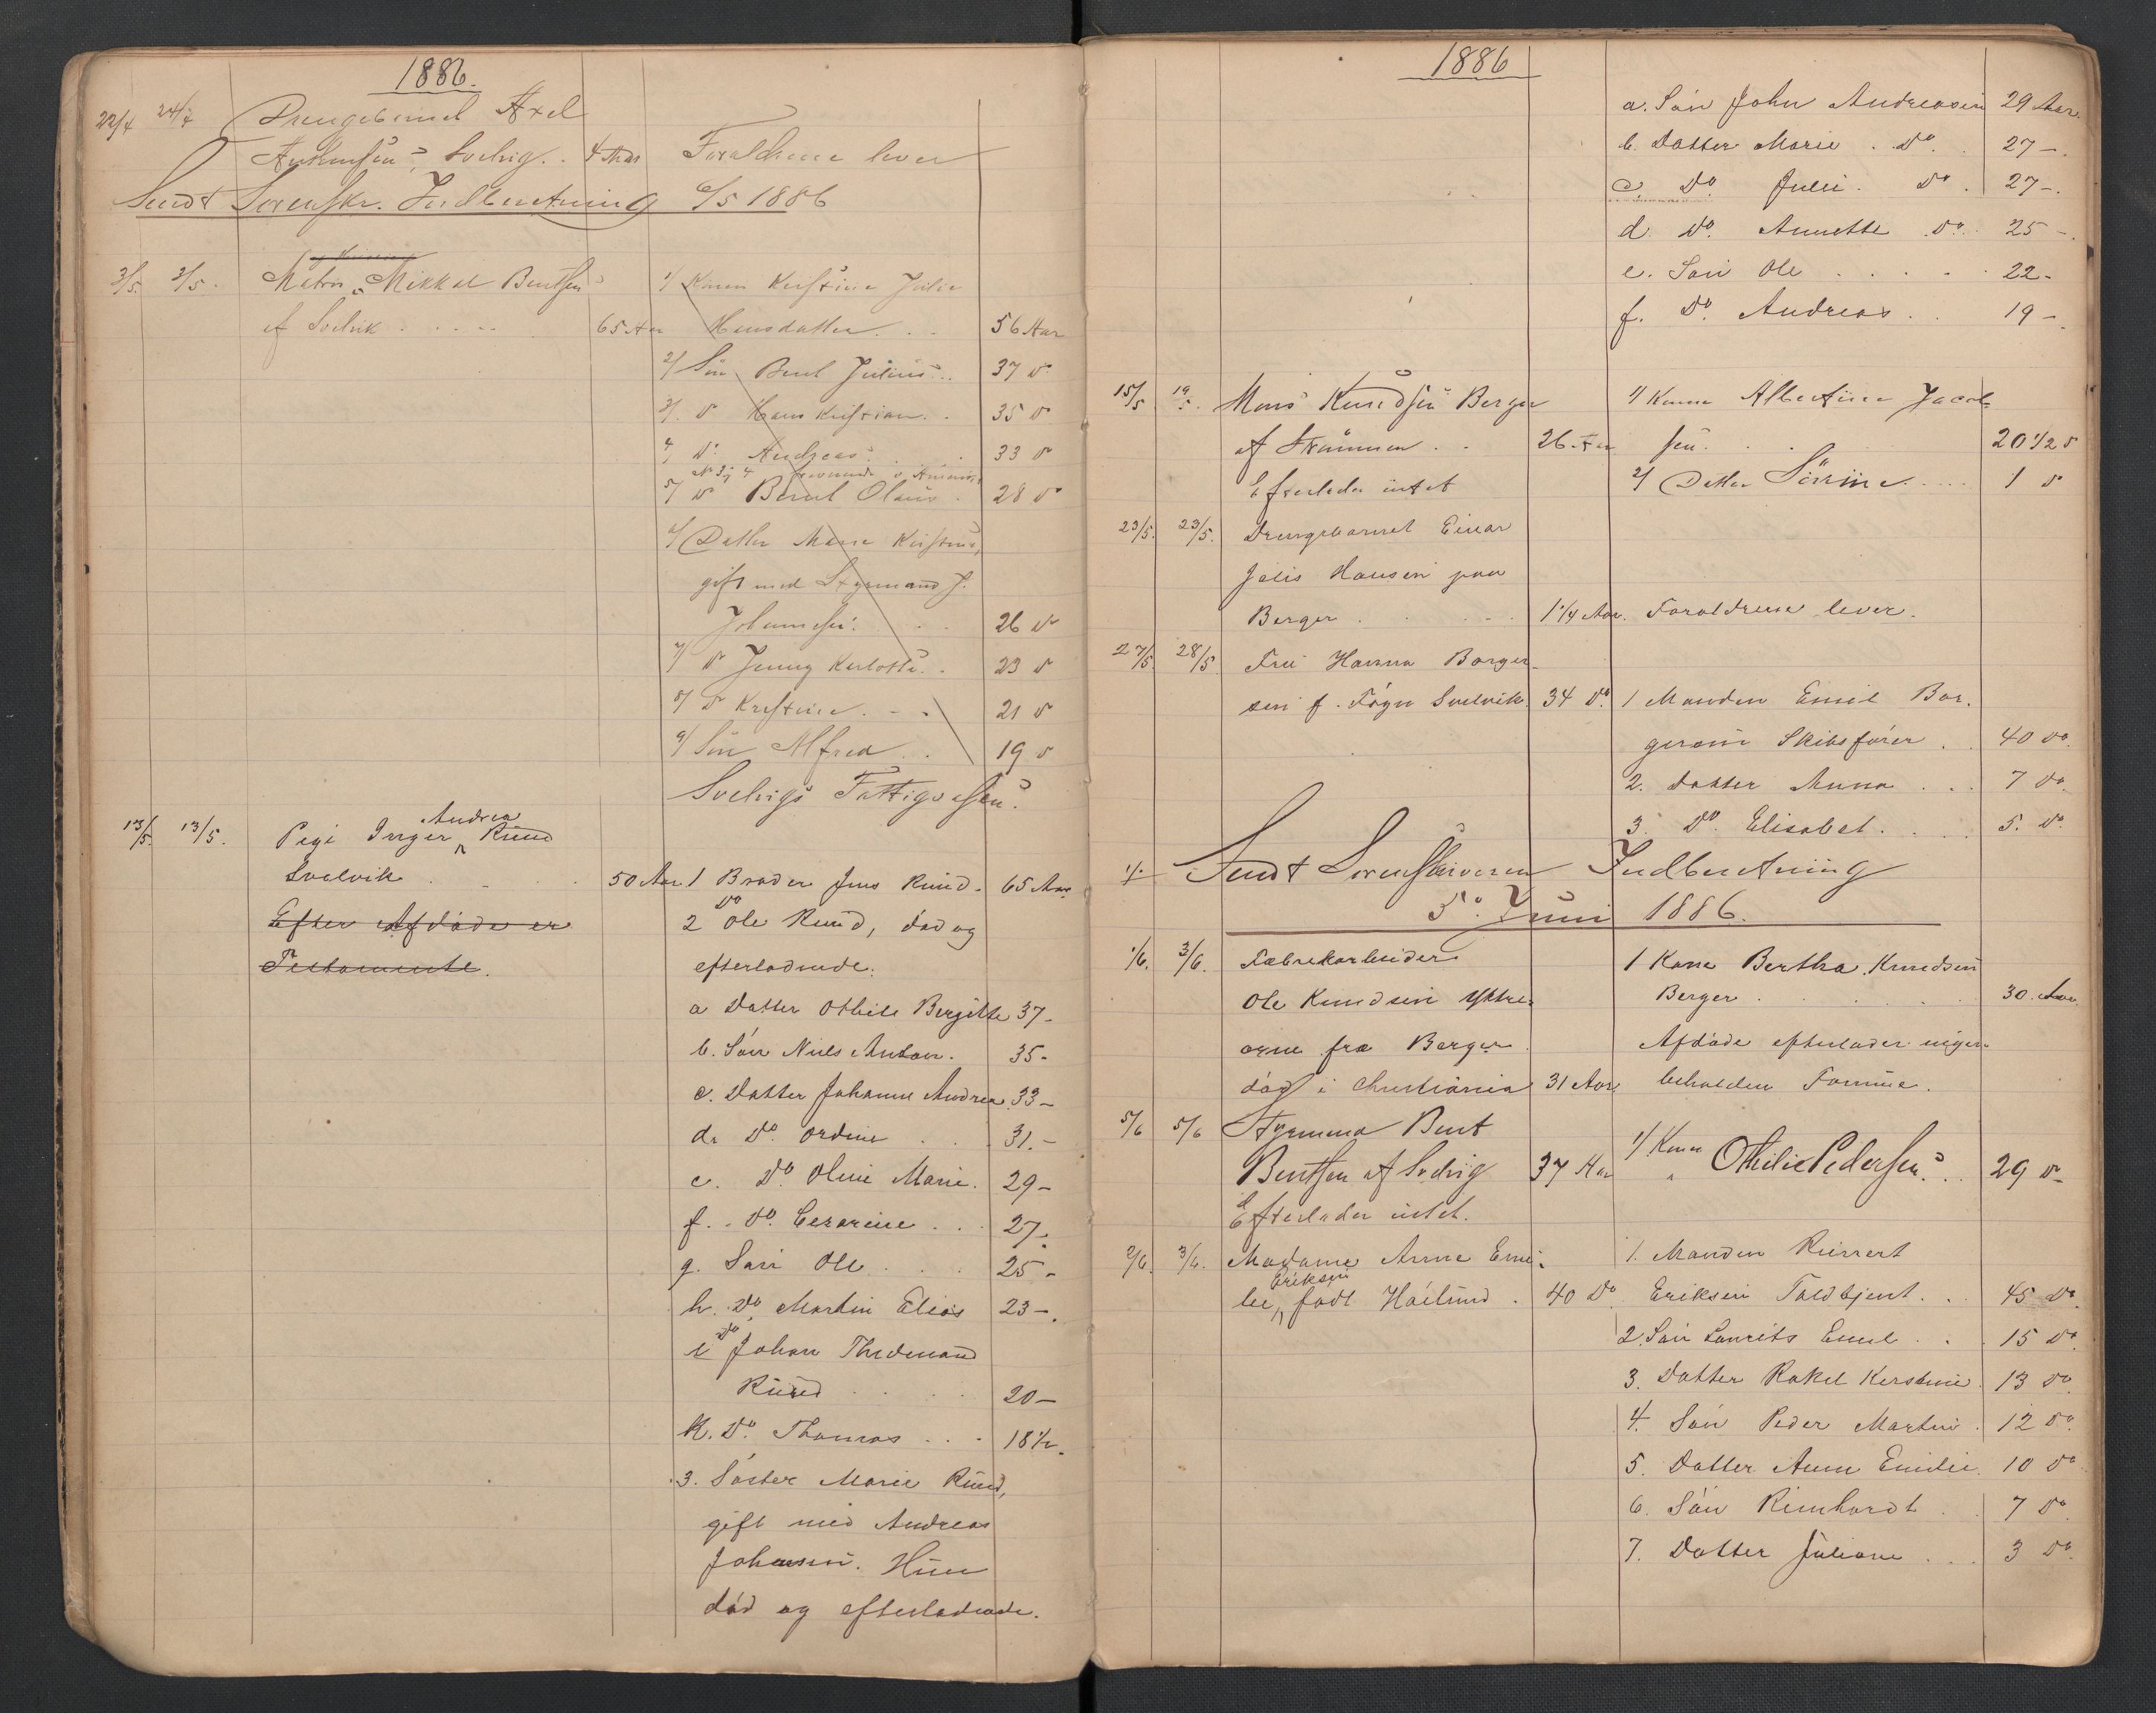 1886.
22/4 24/4 Drengebarnet Axel
Anthonsen, Svelvig. . 4 Aar Forældrene lever
Sendt Sorenskr. Indberetning 6/5 1886
3/5. 3/5. Matros Mikkel Bentsen 1/ Konen Kirstine Julie
af Svelvik . . . . 65 Aar Hansdatter . . 56 Aar
2/ Sön Bent Julius . . 37 do
3/. do Hans Kristian . . 35 do
4/ do Andreas . . 33 do
No 3 & 4 fraværende i Amerika
5/ do Bernt Olaus . 28 do
6/ Datter Maren Kirstine,
gift med Styrmand J.
Johannesen . . 26 do
7/ do Jenny Karlotte . . 23 do
8/ do Kristine . - . 21 do
9/ Sön Alfred . . 19 do
Svelvigs Fattigvæsen.
13/5. 13/5. Pige Inger Andrea Ruud
Svelvik . . . 50 Aar 1 Broder Jens Ruud. 65 Aar
Efter Afdöde er 2 do Ole Ruud, död og
Testamente. efterladende:
a Datter Othile Bergitte 37-
b. Sön Niels Anton. 35-
c. Datter Johanne Andrea 33-
d. Do. Ordine . . 31.-
e. Do. Oline Marie. 29-
f. . Do. Cesarine . . . 27-
g. Sön Ole . . . 25-
h. Do. Martin Elias 23-.
i do Johan Thedmand
Ruud . . . . 20-
k. Do. Thomas . . . 18 1/2.
3. Söster Marie Ruud,
gift med Andreas
Johansen. Hun
död og efterladende.
1886
a. Sön John Andreasen 29 Aar.
b. Datter Marie . Do. . 27-.
c. Do. Julie . Do . 27-.
d. Do. Annette Do. . 25-.
e. Sön Ole . . . . . 22-
f. Do. Andreas . . 19-.
15/5 19/5. Mons Knudsen Berger 1/ Konen Albertine Jacob-
af Strömmen . . 26 Aar sen . . . 20 1/2 do
Efterlader intet 2/ Datter Sörine . . . 1 do
23/5. 23/5. Drengebarnet Einar
Julis Hansen paa
Berger . . . . . 1 1/4 Aar. Forældrene lever.
27/5. 28/5. Fru Hanna Borger-
sen f. Fögn Svelvik. 34 Do. 1 Manden Emil Bor-
gersen Skibsförer . . 40 do.
2. Datter Anna . . . 7 do.
3. Do. Elisabet . . . . 5. do.
Sendt Sorenskriveren Indberetning
5. Juni 1886.
1/6. 3/6. Fabrikarbeider 1 Kone Bertha Knudsen
Ole Knudsen Berger . . . . . . 30. Aar.
fra Berger Afdöde efterlader ingen
död i Christiania 31 Aar beholden Formue.
5/6 5/6 Styrmand Bent
Bentsen af Svelvig 37 Aar 1/ Konen Othilie Pedersen . . 29 do
Efterlader intet.
2/6. 3/6. Madame Anna Emi- 1. Manden Rinert
lie Eriksen, födt Höilund . 40 Do. Eriksen Toldbjent . . 45 Do.
2. Sön Laurits Emil . . . 15 do.
3. Datter Rakel Kerstine . 13 do.
4. Sön Peder Martin . 12 do.
5. Datter Anne Emilie . 10 do
6. Sön Reinhardt . . 7 do.
7. Datter Juliane . . . 3 do.